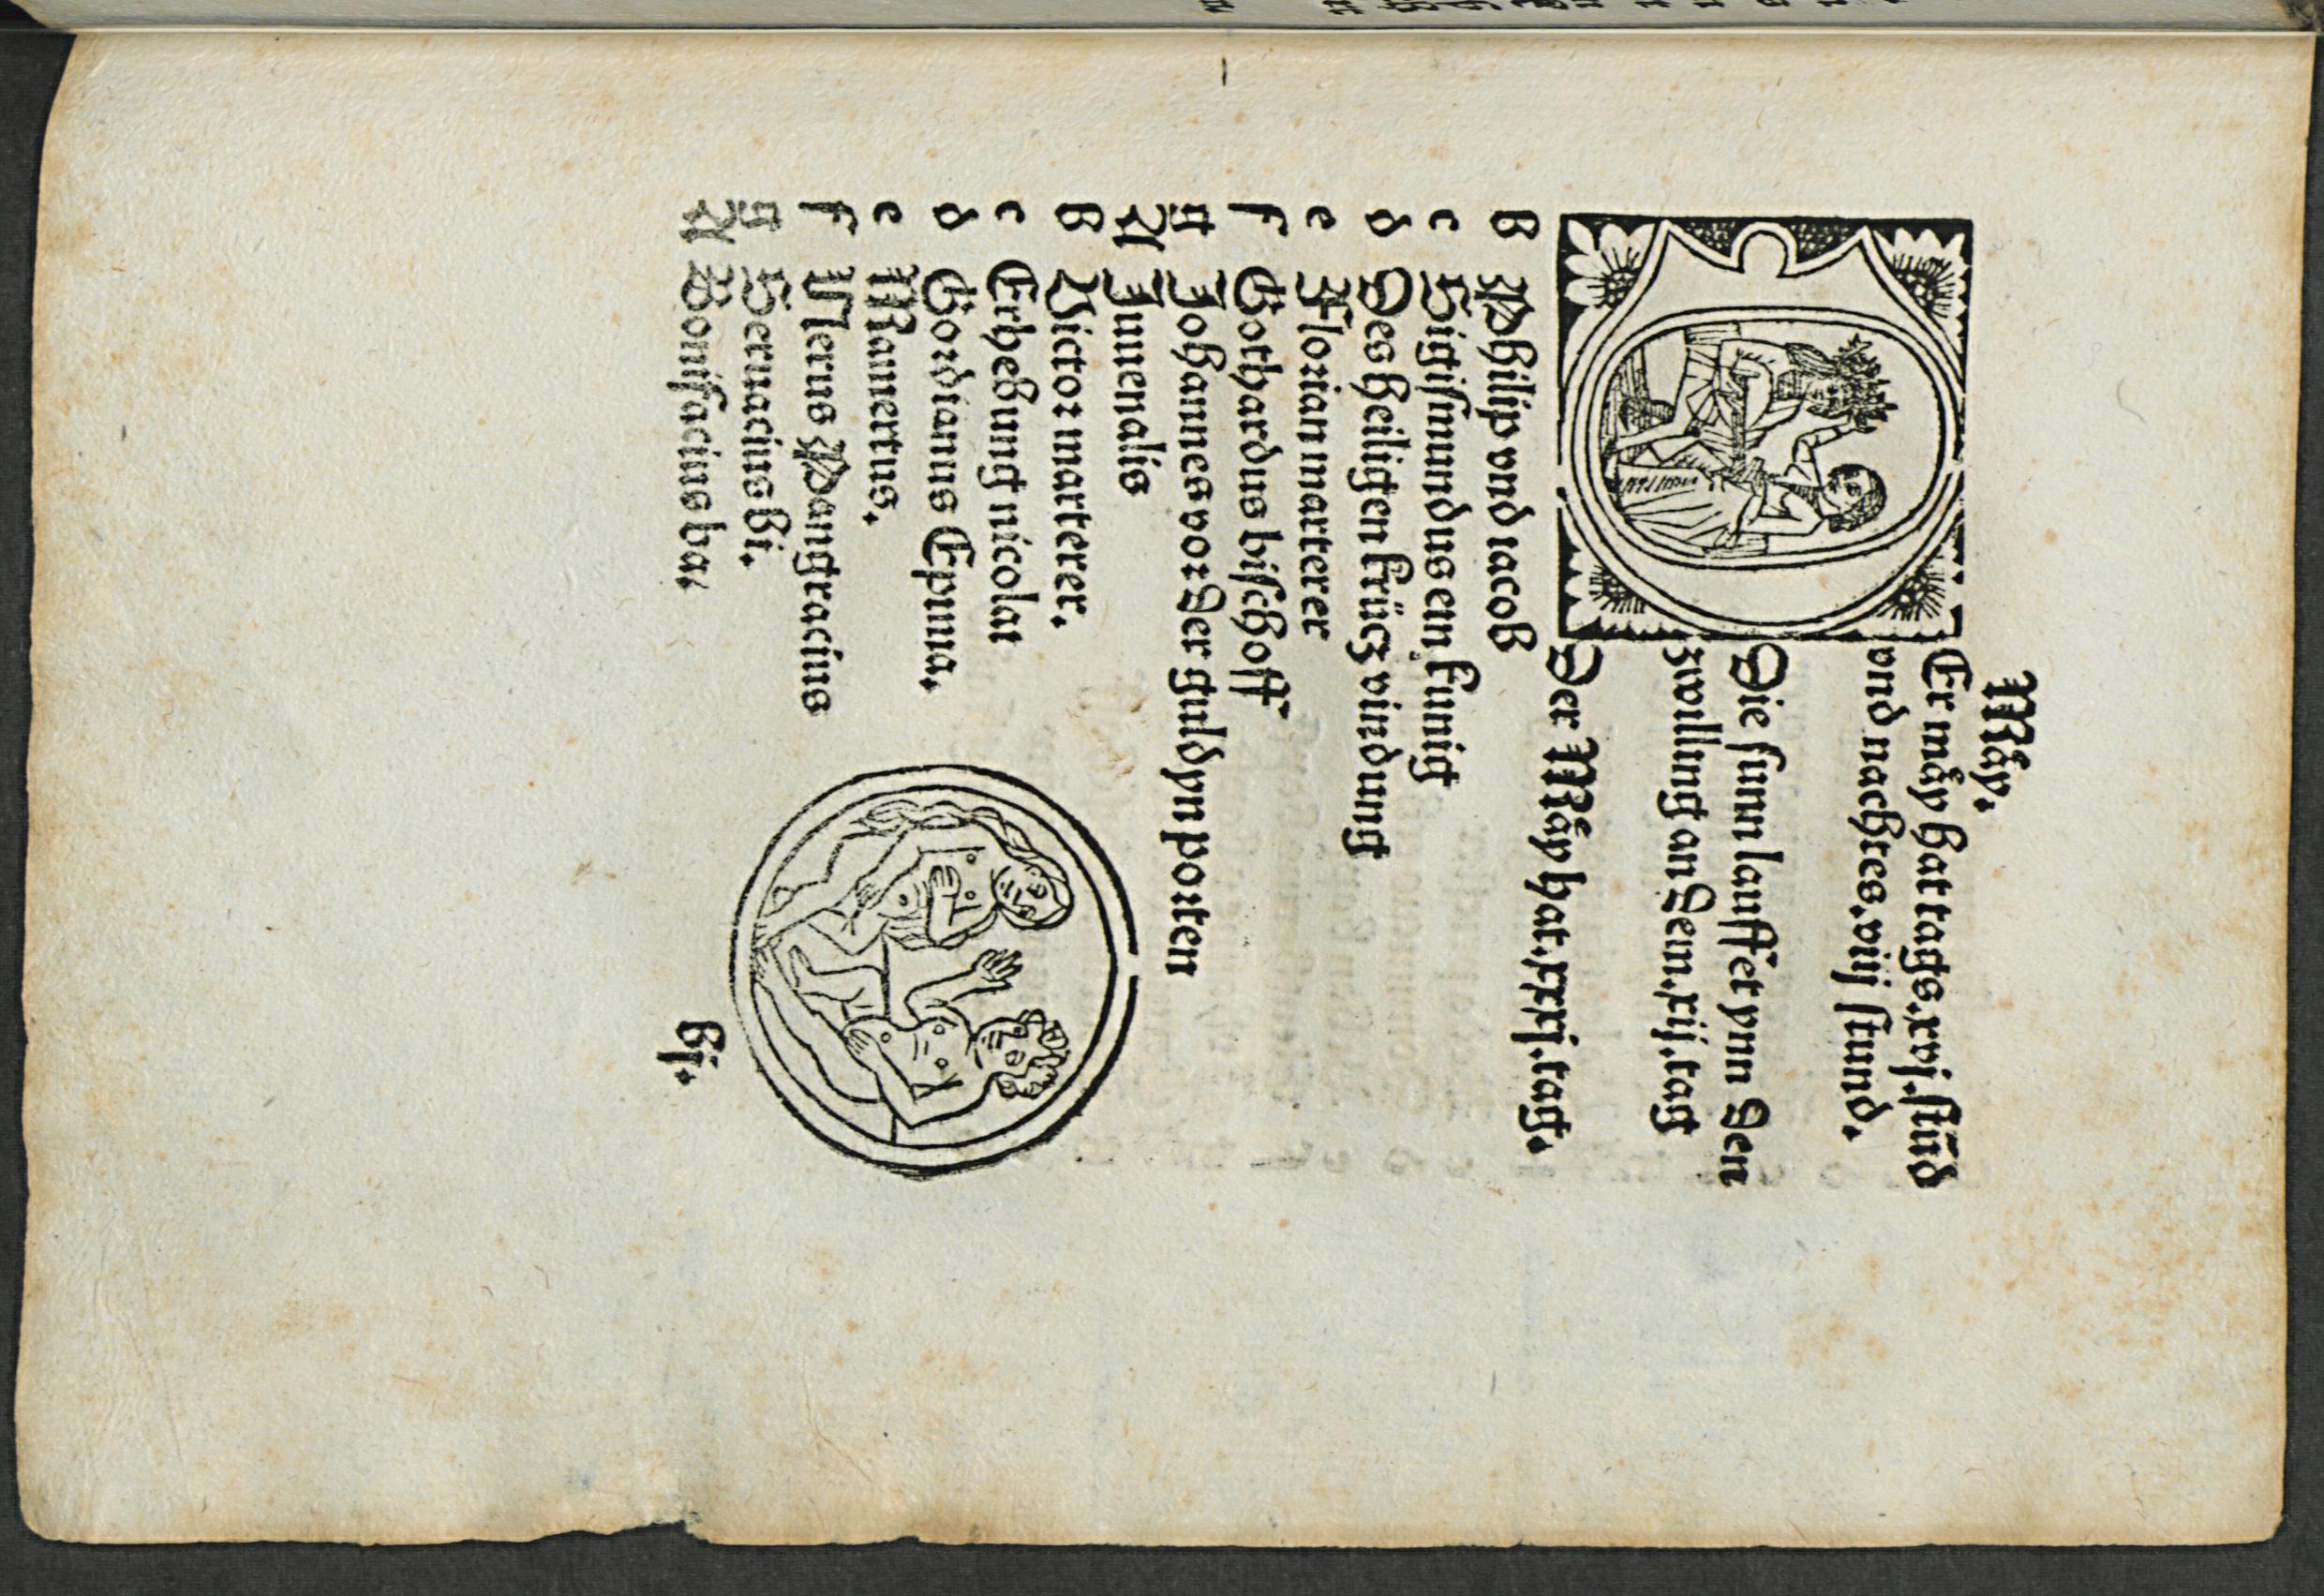 Måy.
Er måy hat tags.xvj.stūd
vnd nachtes.viij stund.
Die sunn lauffet ynn den
zwilling an dem.xij.tag
Der Måy hat.xxxj.tag.
B Philip vnd iacob
c Sigismundus ein kunig
d Des heiligen krücz vindung
e Florian marterer
f Gothardus bischoff
g Johannes vor der guldyn porten
A Juuenalis
B Victor marterer.
c Erhebung nicolai
d Gordianus Epima.
e Mamertus.
f Nereus Pangracius
g Seruacius bi.
A Bonifacius ba.
bj.